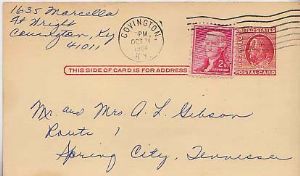 1635 Marcella
Ft Wright
Covington, Ky
41011
COVINGTON
PM
OCT
KY.
2¢
POSTAL CARD
THIS SIDE OF CARD IS FOR ADDRESS
Mr. and Mrs. A. L. Gibson
Route 1
Spring City, Tennessee